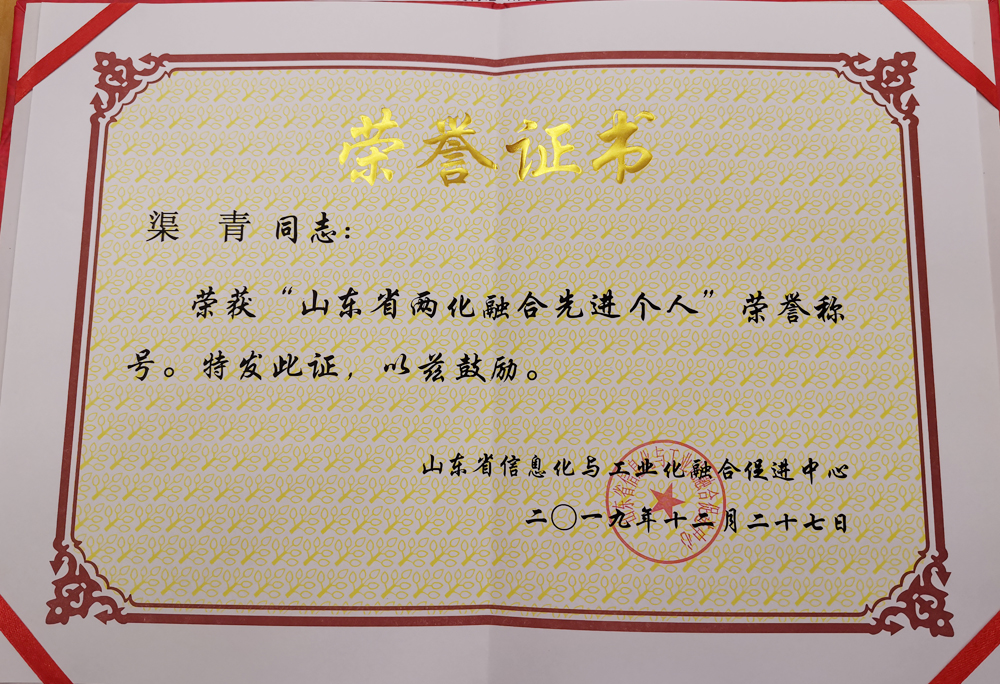 荣誉证书
渠 青 同志：
荣获“山东省两化融合先进个人”荣誉称
号。特发此证，以兹鼓励。
山东省信息化与工业化融合促进中心
二〇一九年十二月二十七日
山东省信息化与工业化融合促进中心